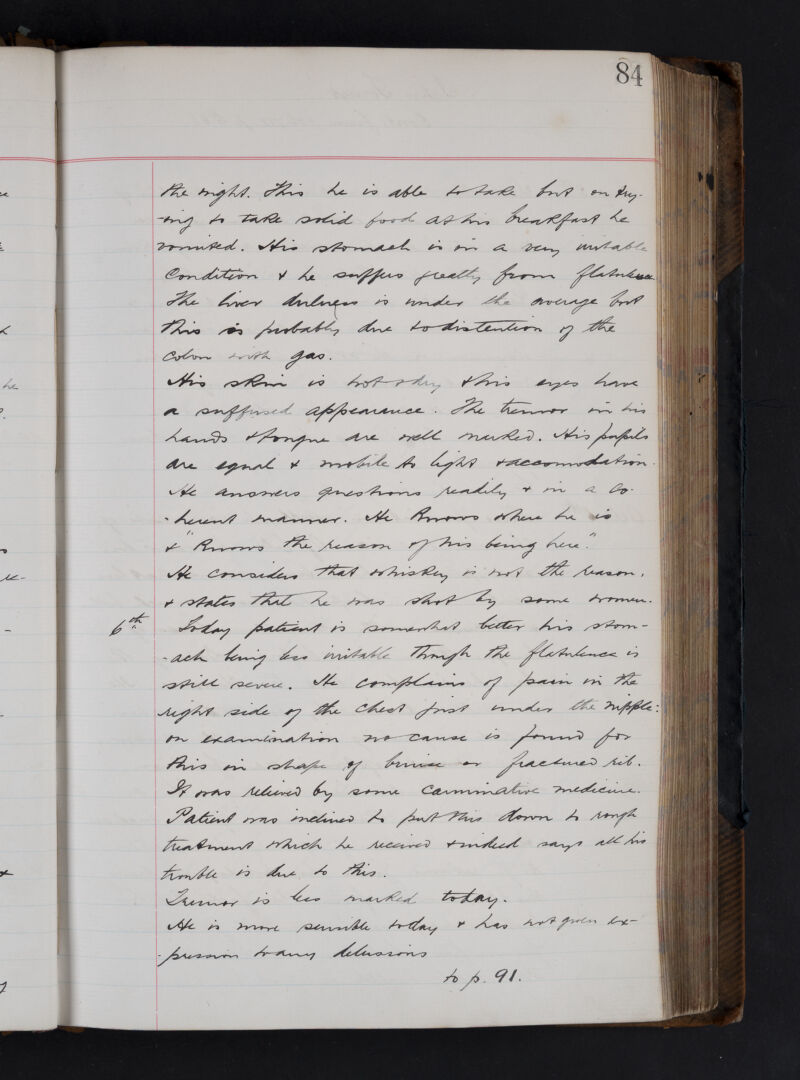 84
the night. This he is able to take but on try-
-ing to take solid food at his breakfast he
vomited. His stomach is in a very irritable
condition & he suffers greatly from flatulence
The liver dulness is under the average but
this is probably due to distention of the
colon with gas.
His skin is hot & dry & his eyes have
a suffused appearance. The tremor in his
hands & tongue are well marked. His pupils
are equal & mobile to light & accomodation.
He answers questions readily & in a co-
-herent manner. He knows where he is
& "knows the reason of his being here".
He considers that whiskey is not the reason.
& states that he was shot by some women.
6th Today patient is somewhat better his stom-
-ach being less irritable though the flatulence is
still severe. He complains of pain in the
right side of the chest just under the nipple:
on examination no cause is found for
this in shape of bruise or fractured rib.
It was relieved by some carminative medicine.
Patient was inclined to put this down to rough
treatment which he received & indeed says all his
trouble is due to this.
Tremor is less marked today.
He is more sensible today & has not given ex-
-pression to any delusions
to p. 91.